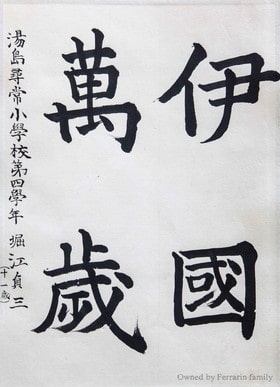 伊國
萬歲
湯島尋常小學校第四學年 堀江貞三
(十一歳)
Owned by Ferrarin family